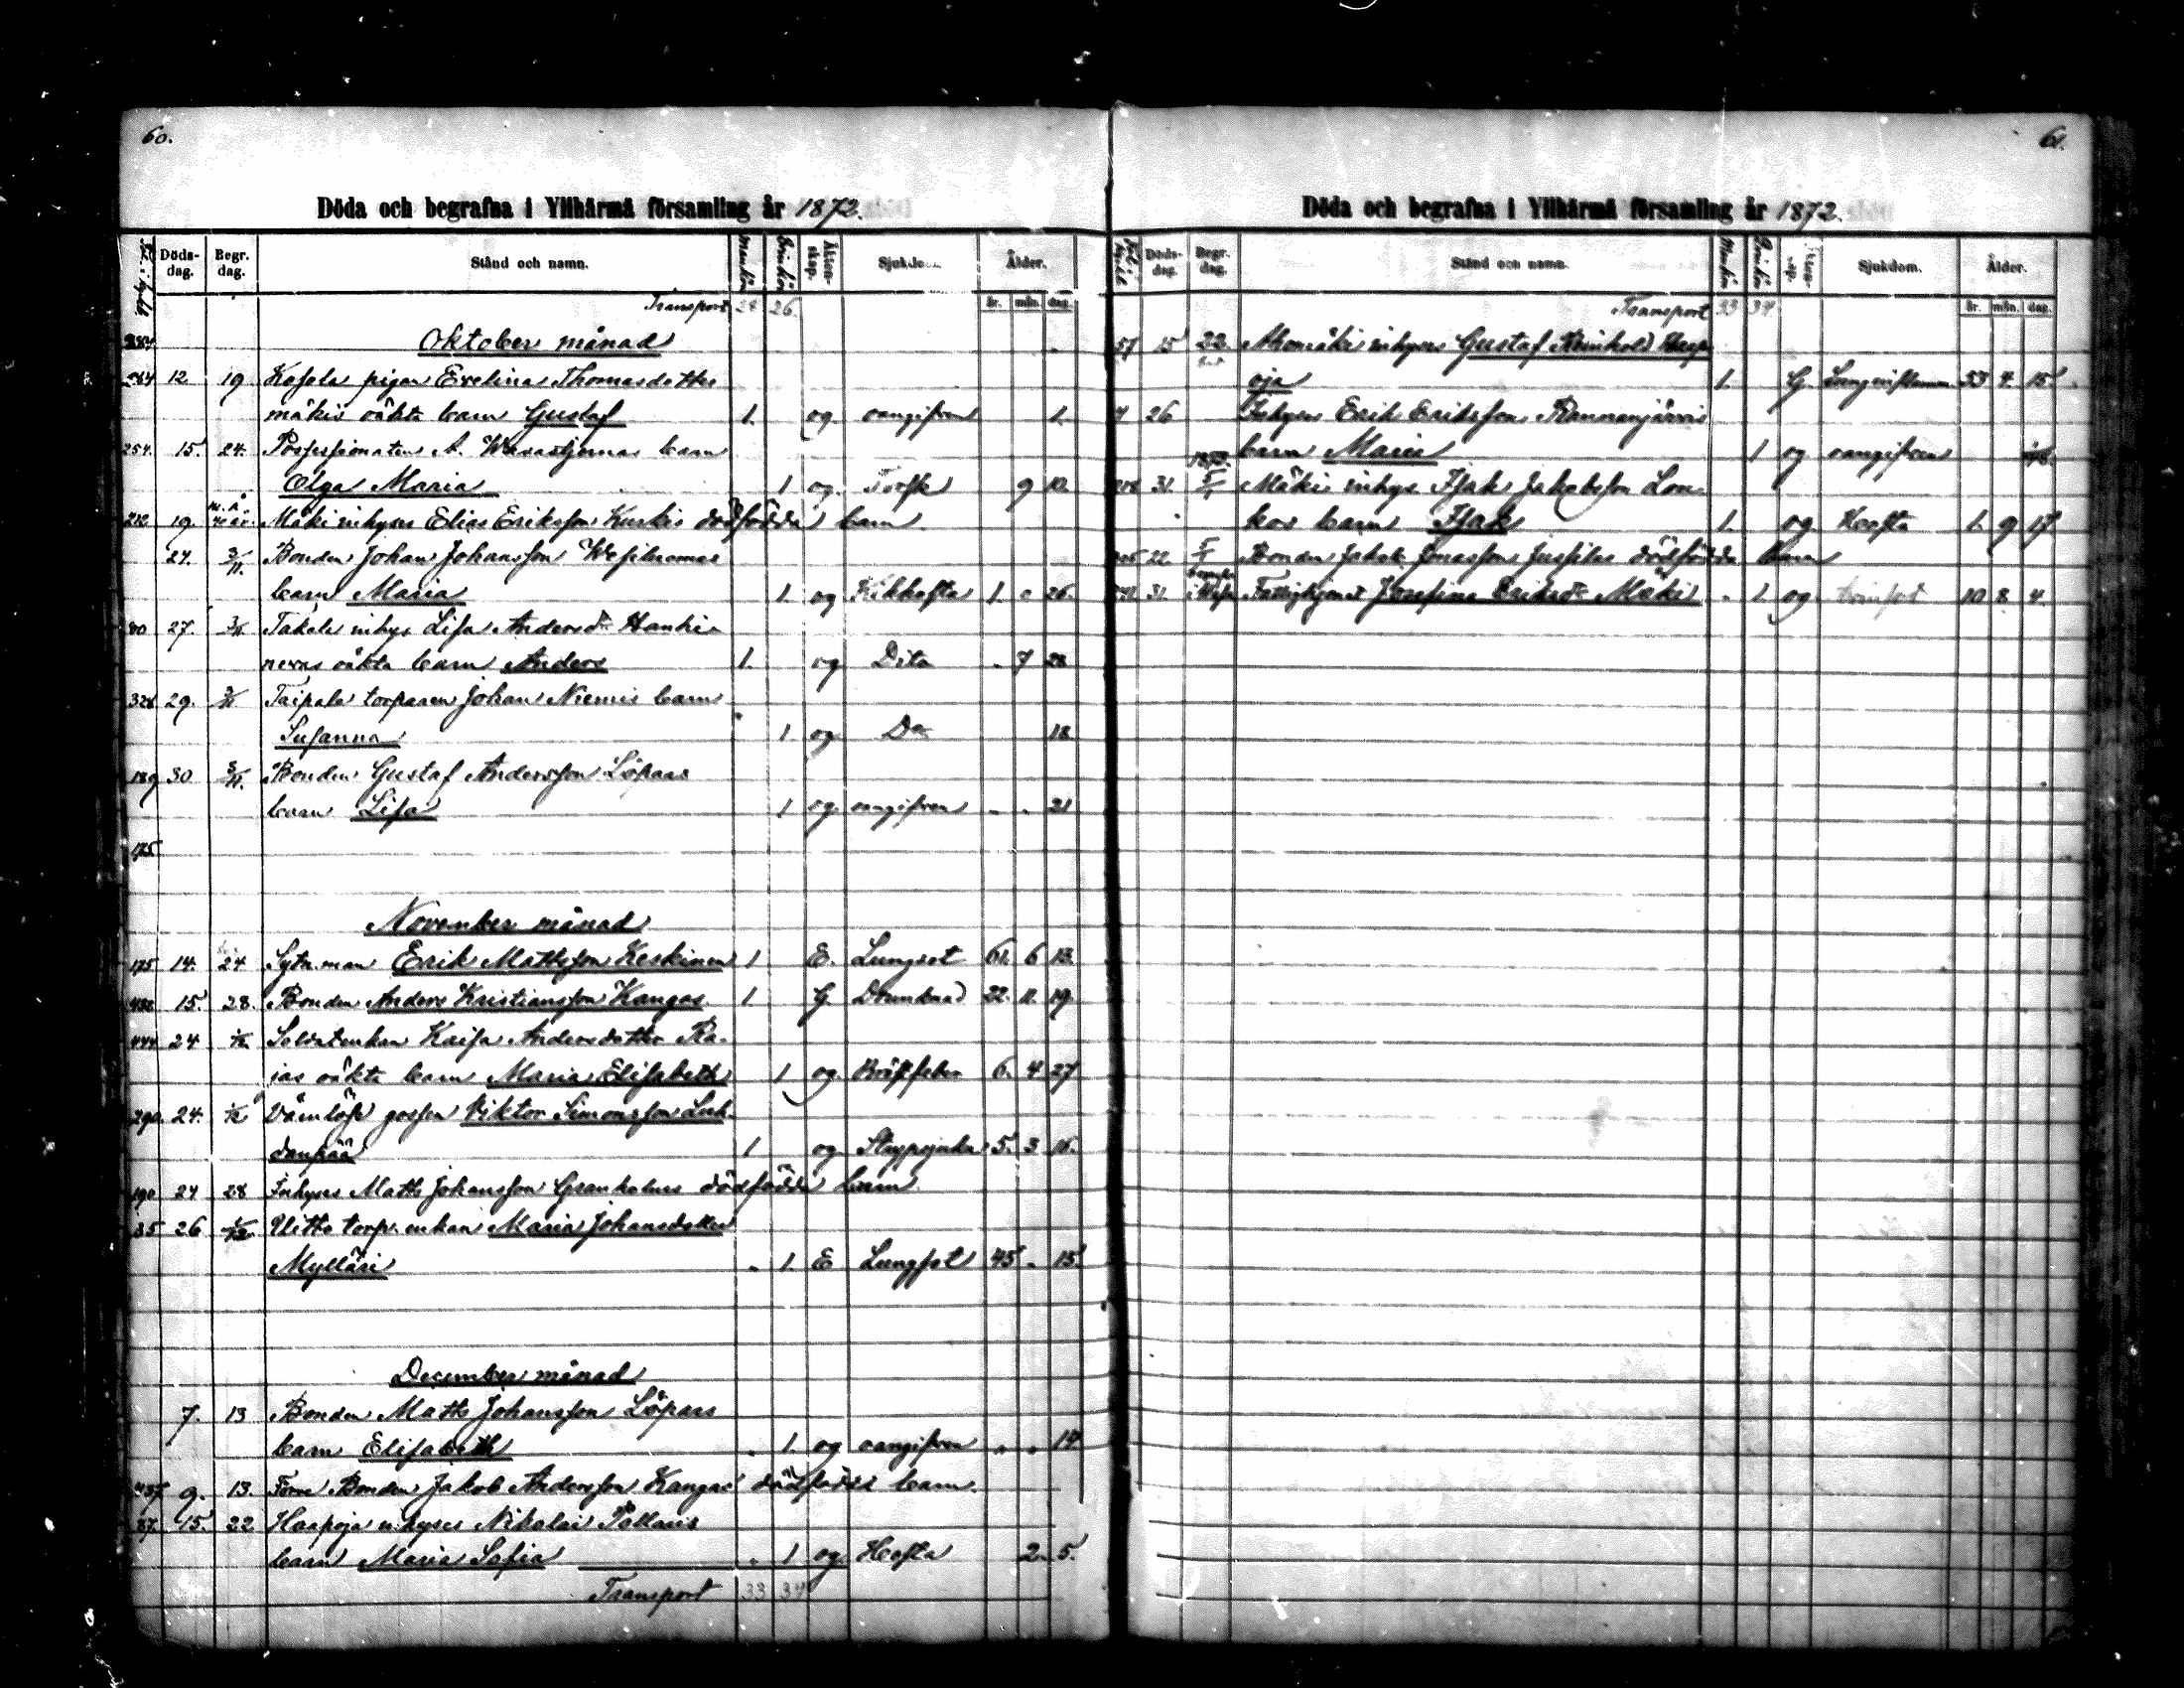 60.
Döda och begrafna i Yllhärmä församling år 1872.
Döds-dag. Begr. dag. Stånd och namn. Mankön Qvinkön Äkten-skap. Ålder.
Transport 26. år. mån. dag.
Oktober månad
264 12 19 Kasala pigan Evelina Thomasdotter
mäkis oäkta barn Gustaf 1. og. oangifven 1.
254. 15. 24. Possessionaten A. Wasastjernas barn
Olga Maria 1 og. Torsk 9 10.
212 19. Mäki inhyses Elias Eriksson Kuskis dödfödda barn
27. 3/11. Bonden Johan Johansson
barn Maria 1. og Kikhosta 1. 26.
80 27. 3/11 Takala inhys Lisa Andersdr Hanki-
nevas oäkta barn Anders 1. og Dito 7 28
328 29. 3/11 Taipale torparen Johan Niemis barn
Susanna 1 og Do 18
189 30 3/11. Bonden Gustaf Andersson Löpars
barn Lisa 1 og. oangifven 21
175
November månad
175 14. 24 Sytn.man Erik Mattsson Keskinen 1 E. Lungsot 61. 6 13.
438 15. 28. Bonden Anders Kristiansson Kangas 1 G. Drunknad 22. 11. 19.
444 24 1/12. Soldatenkan Kaisa Andersdotter Ra-
jas oäkta barn Maria Elisabeth 1 og Bröstfeber 6. 4 27
290. 24. 1/12 Värnlöse gossen Viktor Simonsson Luh-
danpää 1 og Strypsjuka 5. 3 16.
190 24 28 Inhyses Matts Johansson Granholms dödfödda barn
35 26 1/12. Uitto torp. enkan Maria Johansdotter
Mylläri 1. E Lungsot 45 15
December månad
7. 13 Bonden Matts Johansson Löpars
barn Elisabeth 1 og oangifven 14
437 9. 13. Förre Bonden Jakob Andersson Kangas dödfödda barn.
37. 15. 22 Haapoja inhyses Nikolai Pollaris
barn Maria Sofia 1 og. Hosta 2. 5.
Transport 33 34
61.
Döda och begrafna i Yllhärmä församling år 1872.
Döds-dag. Begr. dag. Stånd och namn. Mankön Qvinkön Sjukdom. Ålder.
Transport 33 34 år. mån. dag.
57 15 22. Ahomäki inhyses Gustaf Reinhold Haap-
oja 1. G. Lunginflamm. 33 4. 15.
4 26 Inhyses Erik Eriksson Rannanjärvis
barn Maria 1 og oangifven
31. 1873 5/1 Mäki inhys. Isak Jakobsson
barn Isak 1. og Hosta 1. 9 17
22. 5/1 Bonden Jakob Jonasson Jussilas dödfödda barn
31. Fattighjonet Josefina Eriksdr Mäki 1. og 10 8. 4.